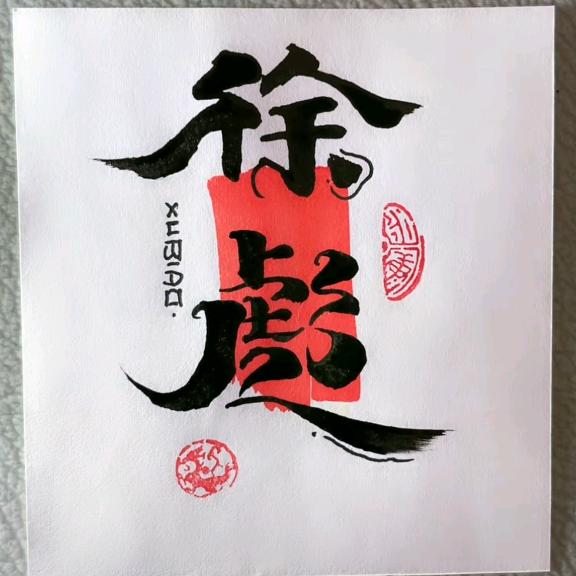 徐
彪
XUBIAO.